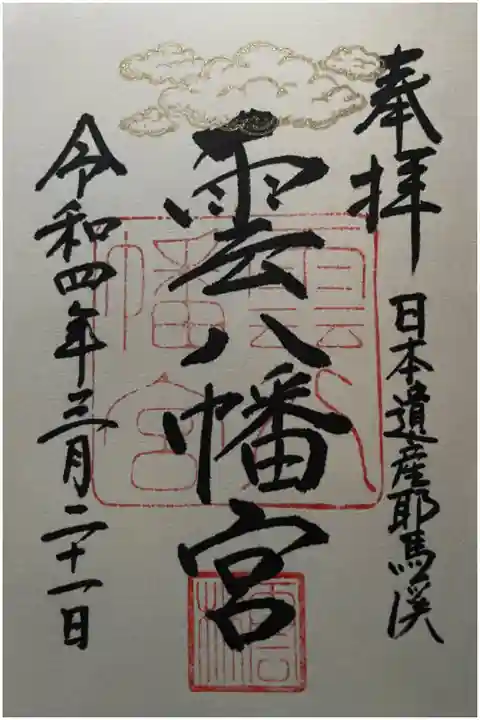 奉拝
日本遺産耶馬溪
雲八幡宮
令和四年三月二十一日
雲八幡宮